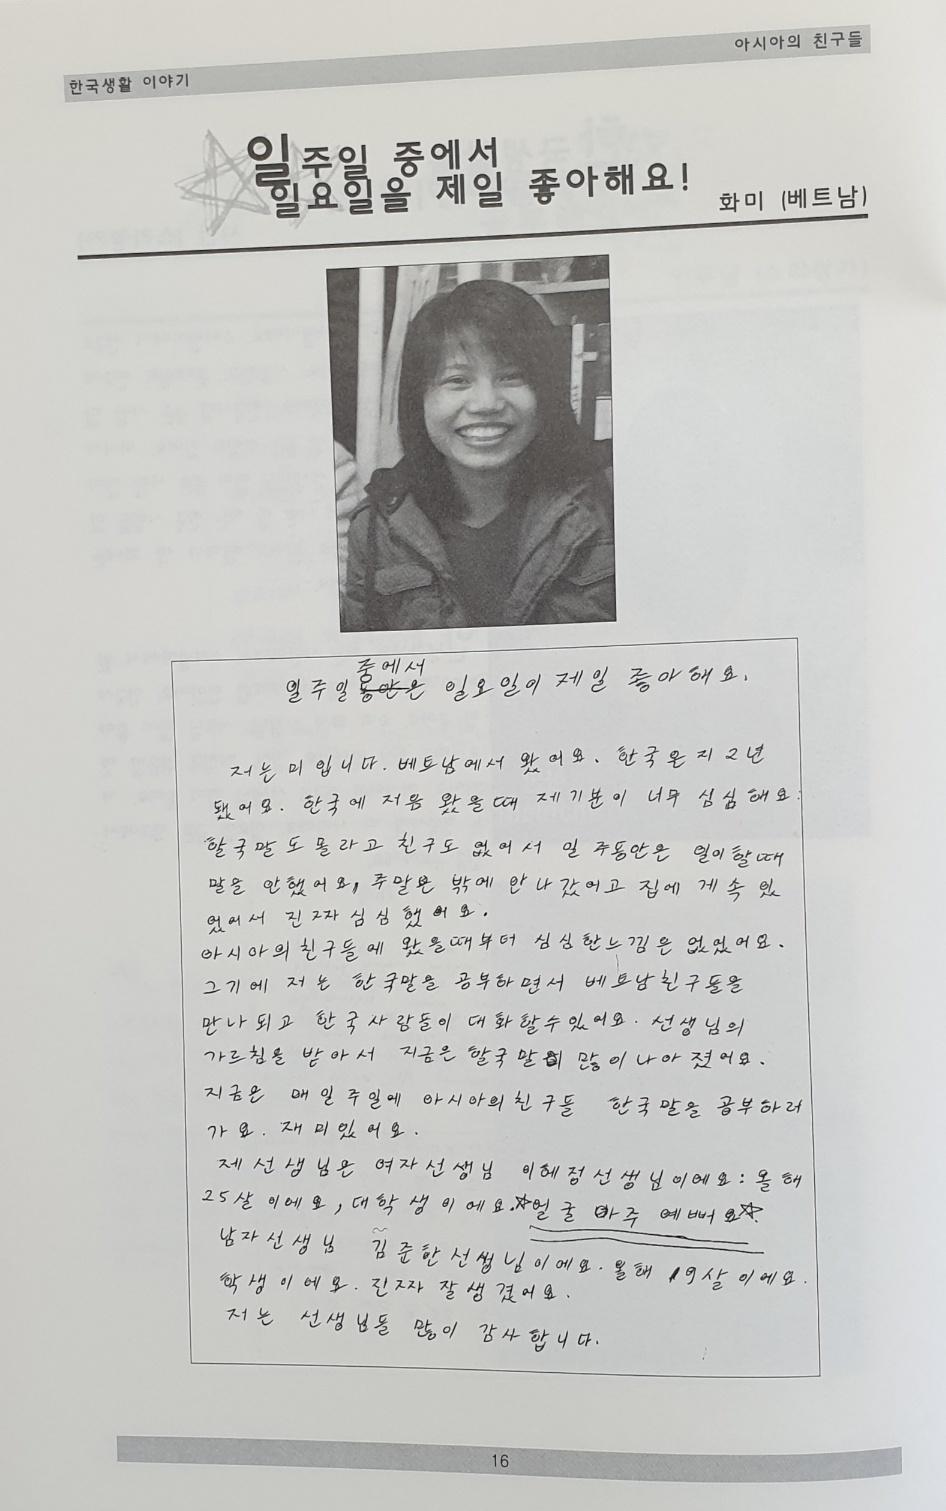 한국생활 이야기
아시아의 친구들
일주일 중에서
일요일을 제일 좋아해요!
화미 (베트남)
중에서
일주일동안은 일요일이 제일 좋아해요.
저는 미입니다. 베트남에서 왔어요. 한국온지 2년
됐어요. 한국에 저음 왔을때 제기분이 너무 심심해요.
한국말도 몰라고 친구도 없어서 일 주동안은 일이할때
말을 안했어요, 주말은 밖에 안나갔어고 집에 게속 있
었어서 진짜 심심했어요.
아시아의친구들에 왔을때부터 심심한느낌은 없었어요.
그기에 저는 한국말을 공부하면서 베트남친구들을
만나되고 한국사람들이 대화할수있어요. 선생님의
가르침을 받아서 지금은 한국말이 많이나아졌어요.
지금은 매일주일에 아시아의친구들 한국말을 공부하러
가요. 재미있어요.
제선생님은 여자선생님 이혜정선생님이에요: 올해
25살이에요, 대학생이에요.☆얼굴 아주 예뻐요☆.
남자선생님 김준한선생님이에요. 올해 19살이에요.
학생이에요. 진짜 잘생겼어요.
저는 선생님들 많이 감사합니다.
16